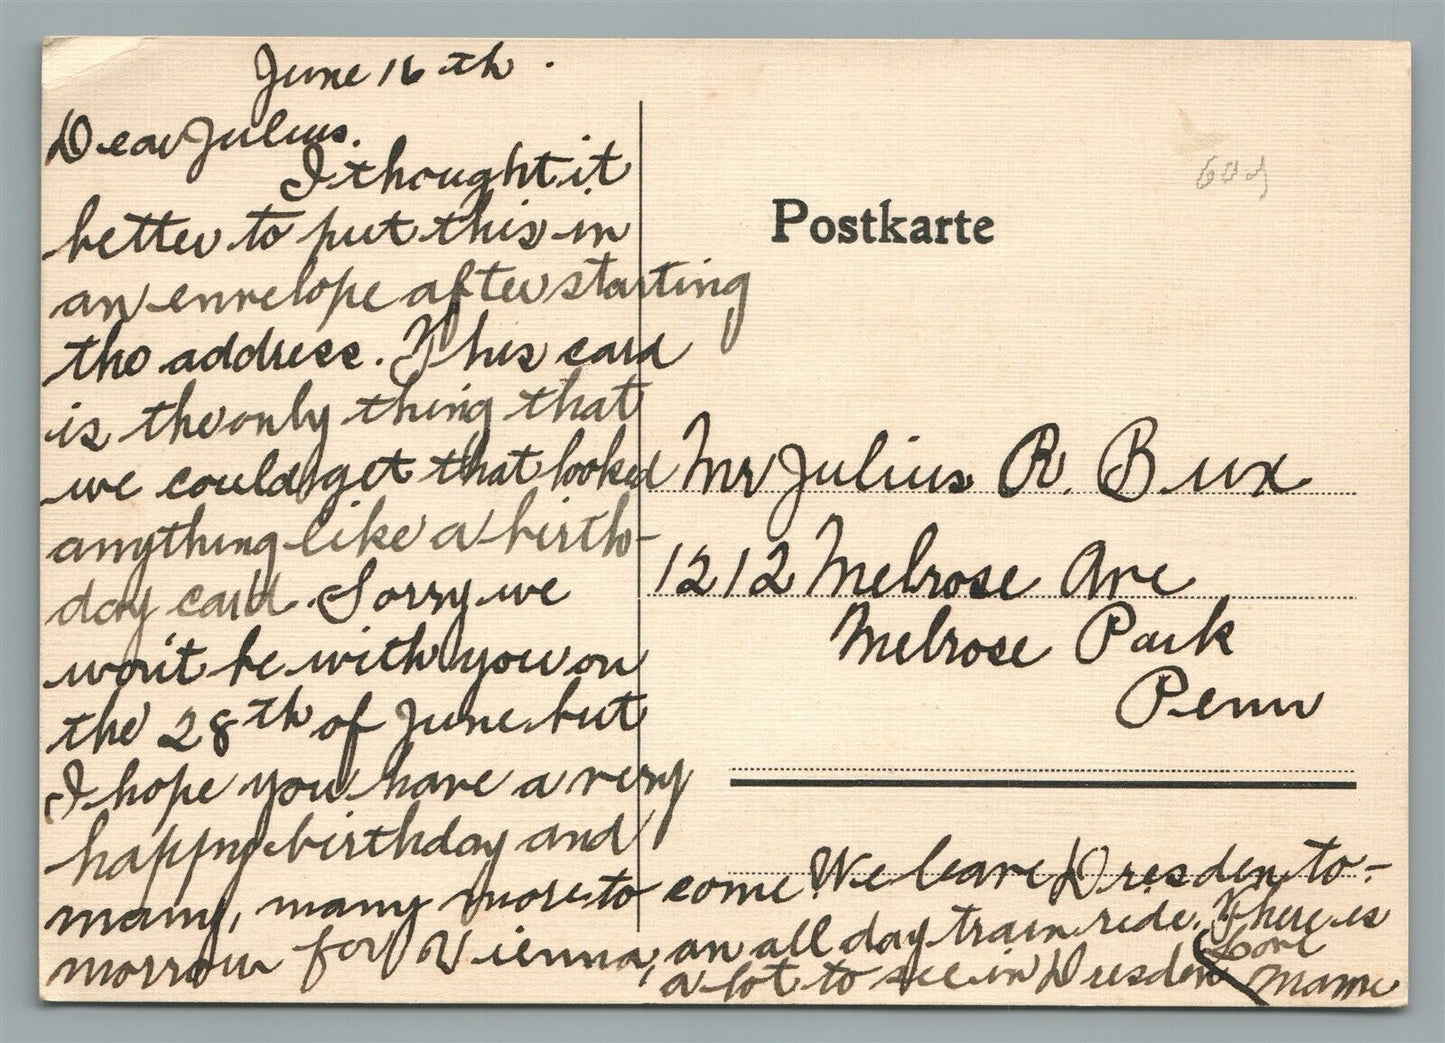 June 16th.
Dear Julius.
I thought it
better to put this in
an envelope after starting
the address. This card
is the only thing that
we could get that looked
anything like a birth-
day card. Sorry we
won't be with you on
the 28th of June but
I hope you have a very
happy birthday and
many, many more to come. We leave Dresden to-
morrow for Vienna, an all day train ride. There is
a lot to see in Dresden
Love
Mame
Postkarte
Mr Julius R. Bux
1212 Melrose Ave
Melrose Park
Penn